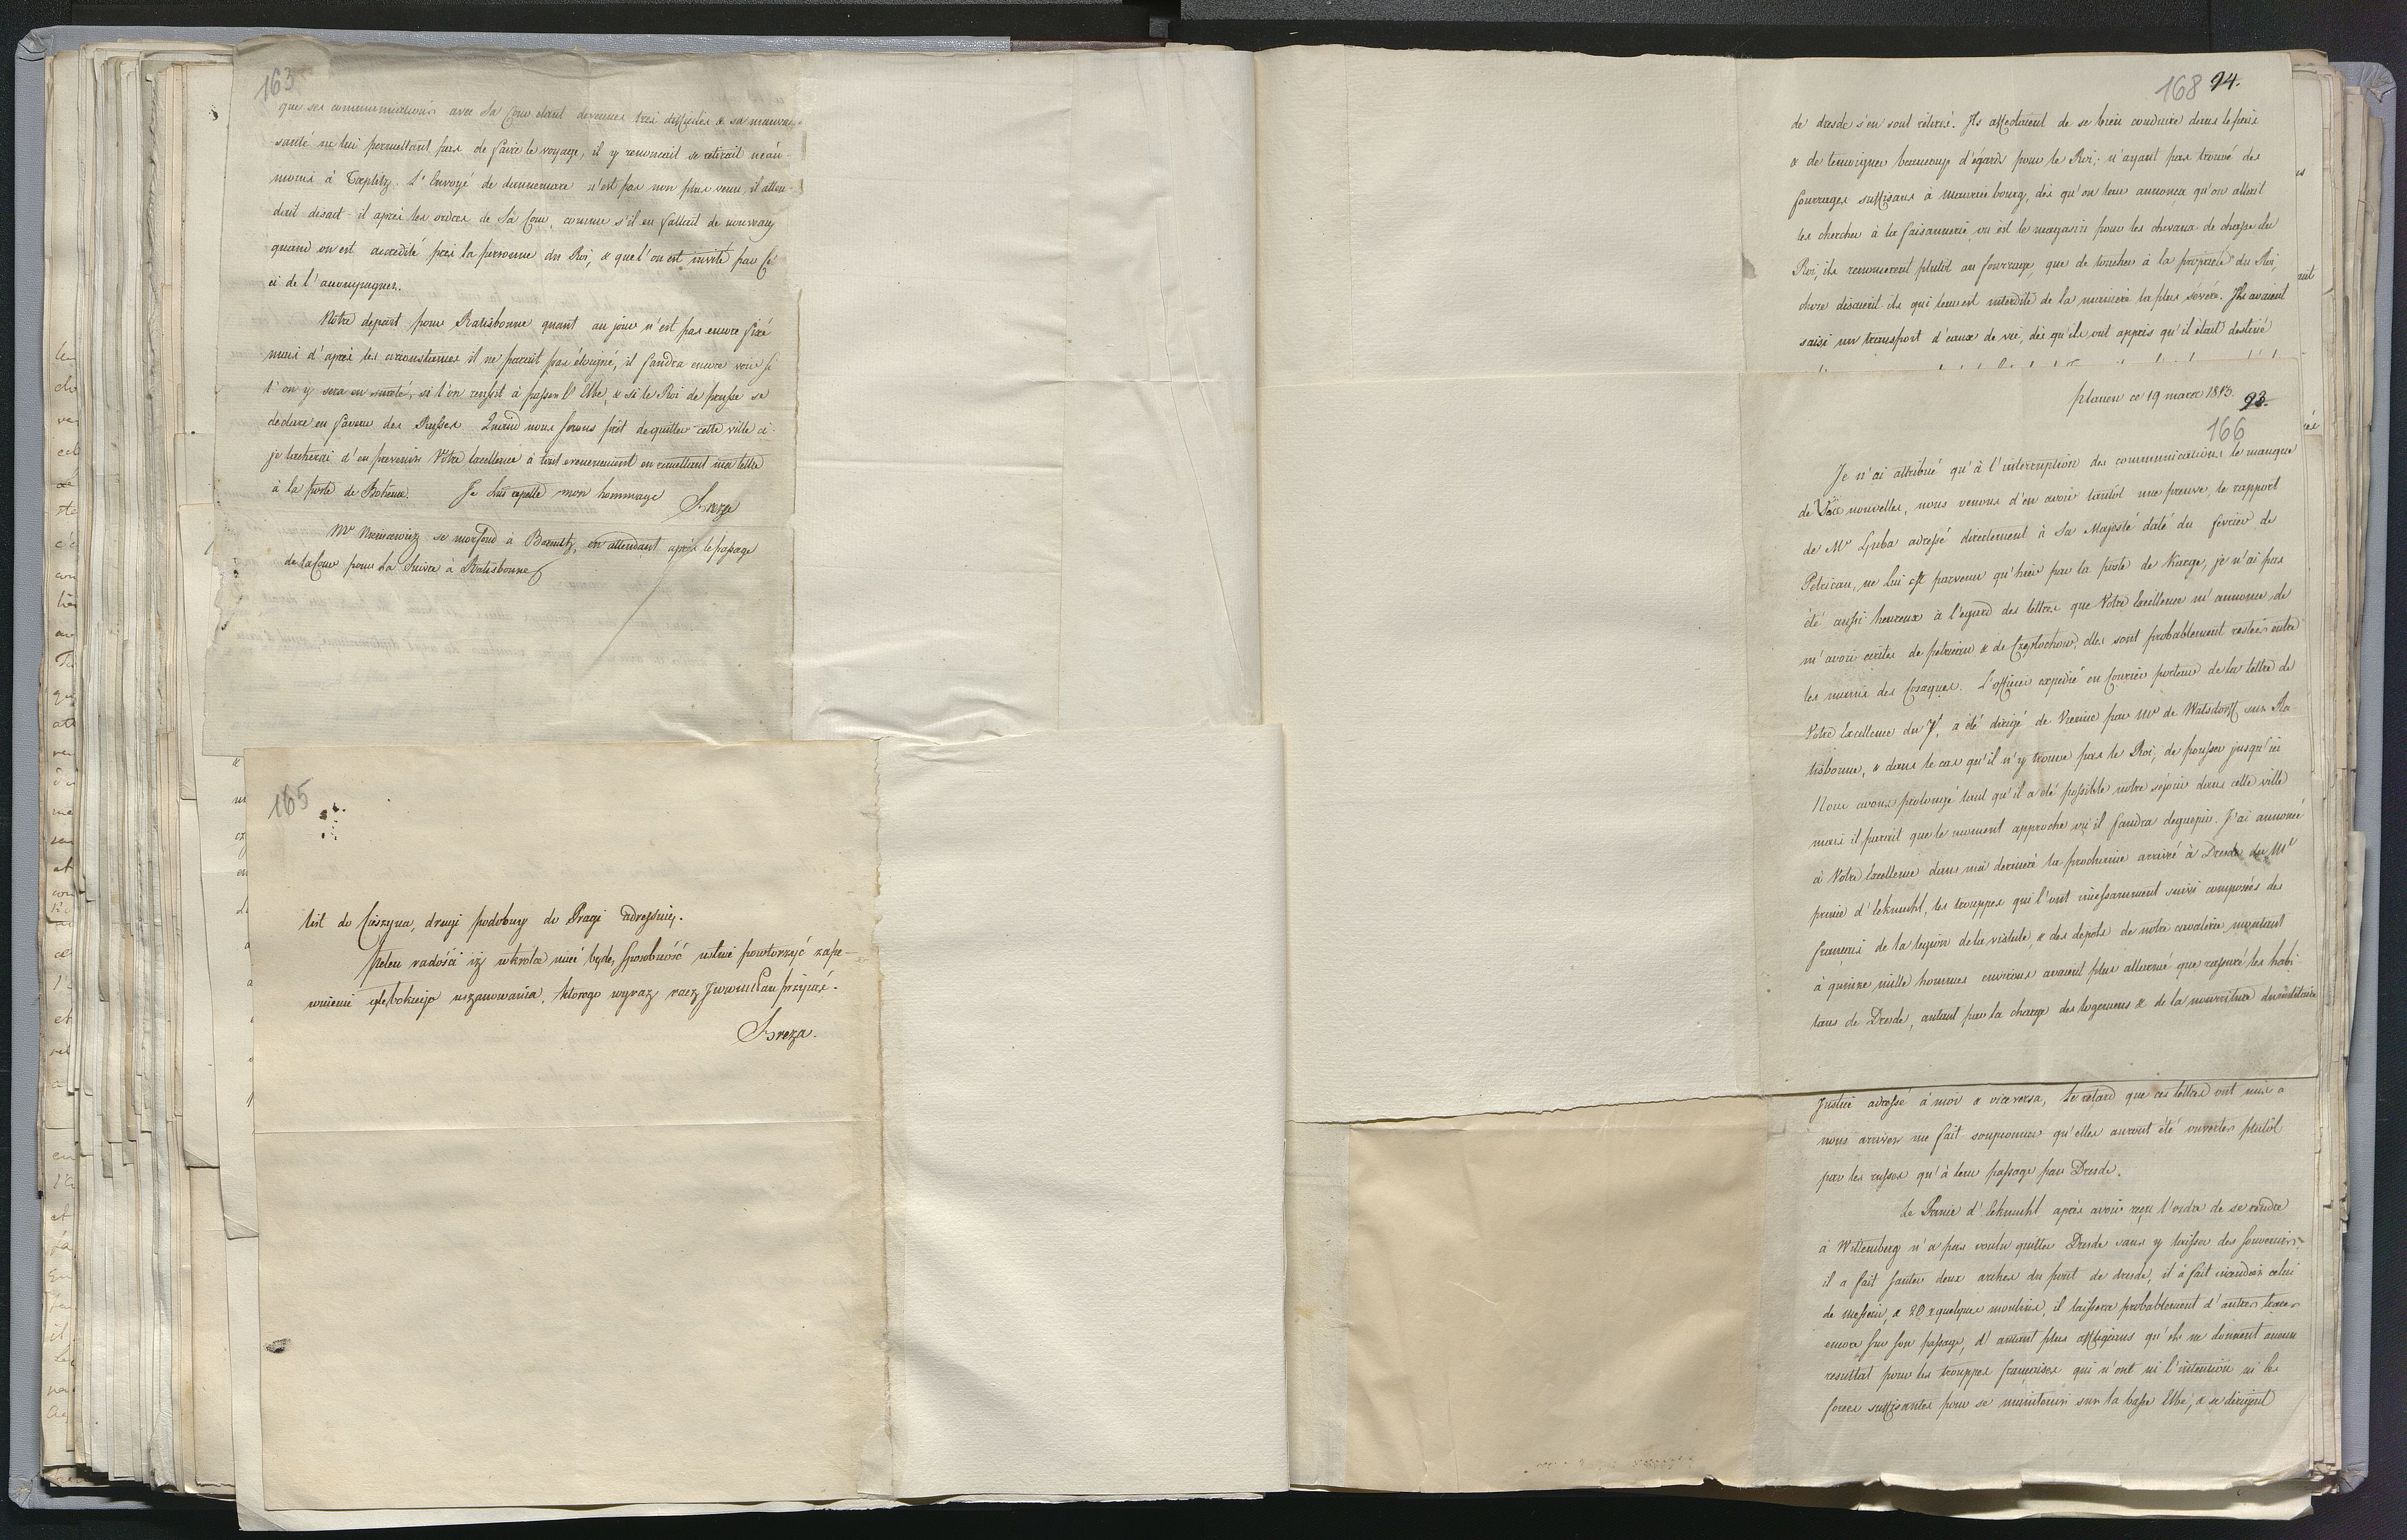 163
que ses communications avec Sa Cour etant devenues tres difficiles & sa mauvaise
santé ne lui permettant pas de faire le voyage, il y renoncait se retirait néan-
moins à Tœplitz. L'Envoyé de dannemarc n'est pas non plus venu, il atten-
dait disait-il après les ordres de Sa Cour, comme s'il en fallait de nouveaux
quand on est accredité près la personne du Roi, & que l'on est invité par Ce-
ci de l'accompagner.
Notre depart pour Ratisbonne quant au jour n'est pas encore fixé
mais d'après les circonstances il ne parait pas éloigné, il faudra encore voir si
l'on y sera en sureté, si l'on reussit à passer l'Elbe, & si le Roi de prusse se
declare en faveur des Russes. Quand nous serons prêt de quitter cette ville ci
je tacherai d'en prevenir Votre Excellence à tout evenement en remettant ma lettre
à la poste de Boheme. Je Lui repette mon hommage
Breza
Mr se morfond à en attendant après le passage
de la Cour pour La suivre à Ratisbonne
165
list do Cieszyna, drugi podobny do Pragi adressuię.
Pełen radości iż wkrótce mieć będę sposobność ustnie powtorzyć zape-
wnienie głębokiego uszanowania, ktorego wyraz racz JWWMPan przyiąć.
Breza.
168 94.
de dresde s'en sont retirés. Ils affectaient de se bien conduire dans le païs
& de temoigner beaucoup d'égards pour le Roi; n'ayant pas trouvé des
fourrages suffisans à Mauricebourg, dès qu'on leur annonca qu'on allait
les chercher à la faisannerie, où est le magasin pour les chevaux de chasse du
Roi, ils renoncerent plutôt au fourrage, que de toucher à la proprieté du Roi,
chose disaient-ils qui leur est interdite de la maniere la plus sévère. Ils avaient
saisi un transport d'eaux de vie, dès qu'ils ont appris qu'il était destiné
plauen ce 19 mars 1813.
93.
166
Je n'ai attribué qu'à l'interruption des communications le manque
de Vos nouvelles, nous venons d'en avoir tantôt une preuve, le rapport
de Mr Łuba adressé directement à Sa Majesté daté du fevrier de
Petricau, ne lui est parvenu qu'hier par la poste de Karge, je n'ai pas
été aussi heureux à l'egard des lettres que Votre Excellence m'annonce de
m'avoir ecrites de petricau & de Częstochow, elles sont probablement restées entre
les mains des Cosaques. L'officier expedié en Courier porteur de la lettre de
Votre Excellence du 7t, a été dirigé de Vienne par Mr de Watzdorff sur Ra-
tisbonne, & dans le cas qu'il n'y trouve pas le Roi, de pousser jusqu'ici
Nous avons prolongé tant qu'il a été possible notre séjour dans cette ville
mais il parait que le moment approche où il faudra deguerpir. J'ai annoncé
à Votre Excellence dans ma derniere la prochaine arrivée à Dresde du Ml
prince d'Ekmuhl, les trouppes qui l'ont incessamment suivi composées des
francais de la legion de la vistule, & des depots de notre cavalerie montant
à quinze mille hommes environs avaient plus allarmé que rassuré les habi-
tans de Dresde, autant par la charge des logemens & de la nourriture du militaire
Justice adressé à moi & vice versa, le retard que ces lettres ont mis a
nous arriver me fait soupconner qu'elles auront été ouvertes plutôt
par les russes qu'à leur passage par Dresde.
Le Prince d'Ekmuhl après avoir reçu l'ordre de se rendre
à Wittemberg n'a pas voulu quitter Dresde sans y laisser des souvenirs,
il a fait sauter deux arches du pont de dresde, il a fait incendier celui
de Meissein, & 20 & quelques moulins, il laissera probablement d'autres traces
encore sur son passage, d'autant plus affligeans qu'ils ne donnent aucun
resultat pour les trouppes francaises qui n'ont ni l'intention ni les
forces suffisantes pour se maintenir sur la basse Elbe, & se dirigent